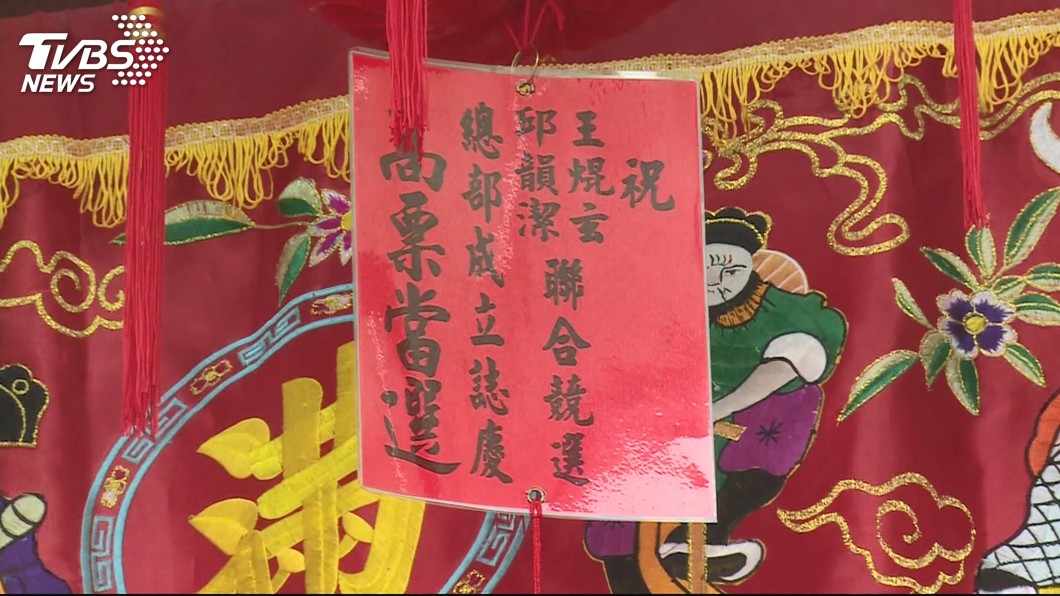 TVBS
NEWS
祝
王焜玄
邱韻潔
聯合競選
總部成立誌慶
高票當選